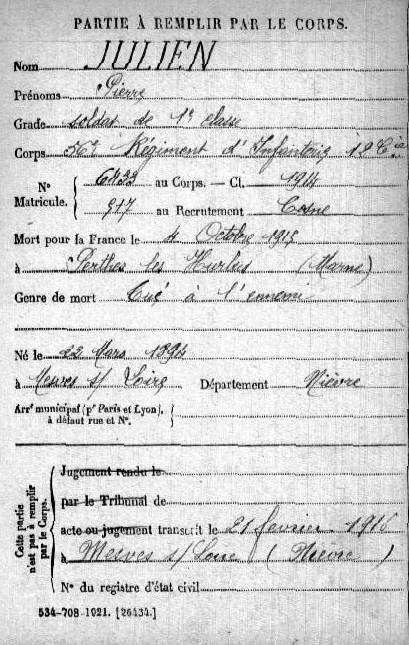 PARTIE À REMPLIR PAR LE CORPS.
Nom JULIEN
Prénoms Pierre
Grade soldat de 1e classe
Corps 56e Régiment d'Infanterie 12e Cie
N° Matricule. { 6833 au Corps. — Cl. 1914
917 au Recrutement Cosne
Mort pour la France le 4 Octobre 1915
à Perthes les Hurlus (Marne)
Genre de mort Tué à l'ennemi
Né le 22 Mars 1894
à Mesves s/ Loire Département Nièvre
Arrt municipal (pr Paris et Lyon), à défaut rue et N°. {
Cette partie n'est pas à remplir par le Corps. {
Jugement rendu le
par le Tribunal de
acte ou jugement transcrit le 21 fevrier 1916
à Mesves s/ Loire (Nièvre)
N° du registre d'état civil
534-708-1921. [26434.]